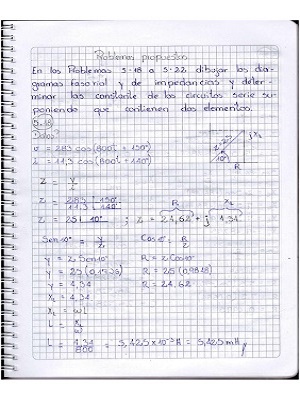 Problemas propuestos
En los Problemas 5-18 a 5-22 dibujar los dia-
gramas fasorial y de impedancias y deter-
minar las constante de los circuitos serie su-
poniendo que contienen dos elementos.
5-18
Datos?
v = 283 cos (800t + 150°)
i = 11,3 cos (800t + 140°)
Z = V/I
Z = 283 |150° / 11.3 |140°
Z = 25 | 10° ; Z = 24,62 + j 4,34
R XL
Sen 10° = Y/Z Cos 10° = R/Z
Y = Z Sen 10° R = Z Cos 10°
Y = 25 (0,1736) R = 25 (0,9848)
Y = 4,34 R = 24,62
XL = 4,34
XL = ωL
L = XL/ω
L = 4,34/800 = 5,425 x 10⁻³ H = 5,425 mH
Z
10°
R
jXL